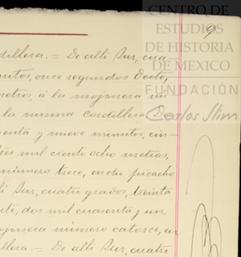 CENTRO DE
ESTUDIOS
DE HISTORIA
DE MEXICO
FUNDACIÓN
Carlos Slim
9
dillera.= De allí Sur, cua
nutos, once segundos Oeste,
metros, á la mojonera nú
la misma Cordillera
enta y nueve minutos, cin
tres mil ciento ocho metros,
número trece, en otro picacho
Sur, cuatro grados, treinta
te, dos mil cuarenta y un
mojonera número catorce, en
llera.= De allí Sur, cuatro